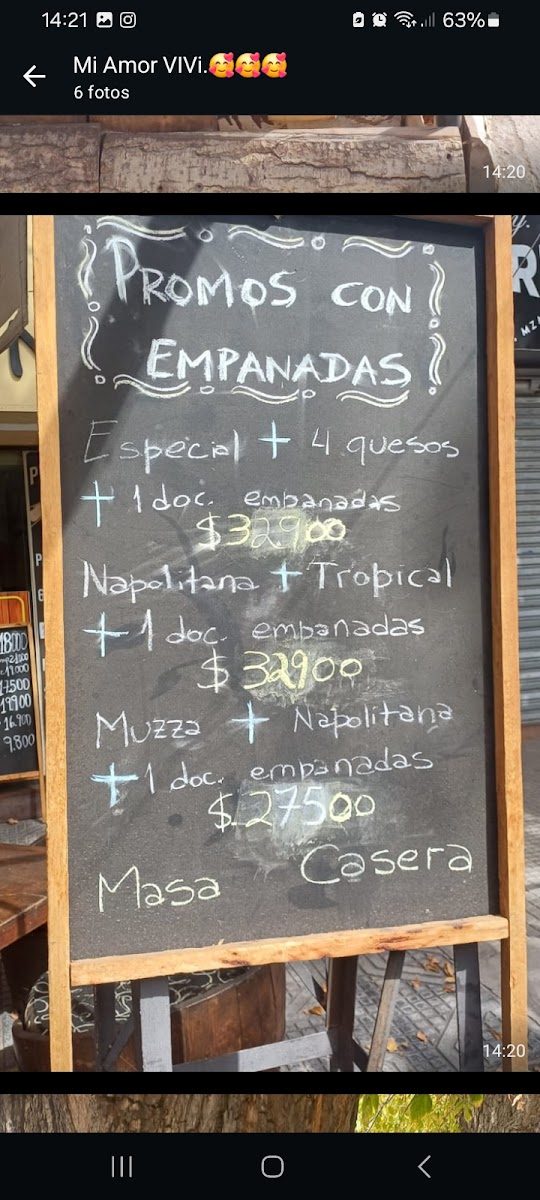 14:21
63%
Mi Amor VIVi.🥰🥰🥰
6 fotos
14:20
PROMOS CON
EMPANADAS
Especial + 4 quesos
+ 1 doc. empanadas
$32900
Napolitana + Tropical
+ 1 doc. empanadas
$32900
Muzza + Napolitana
+ 1 doc. empanadas
$27500
Masa Casera
18000
17500
19900
16.900
9.800
R
MZA
14:20